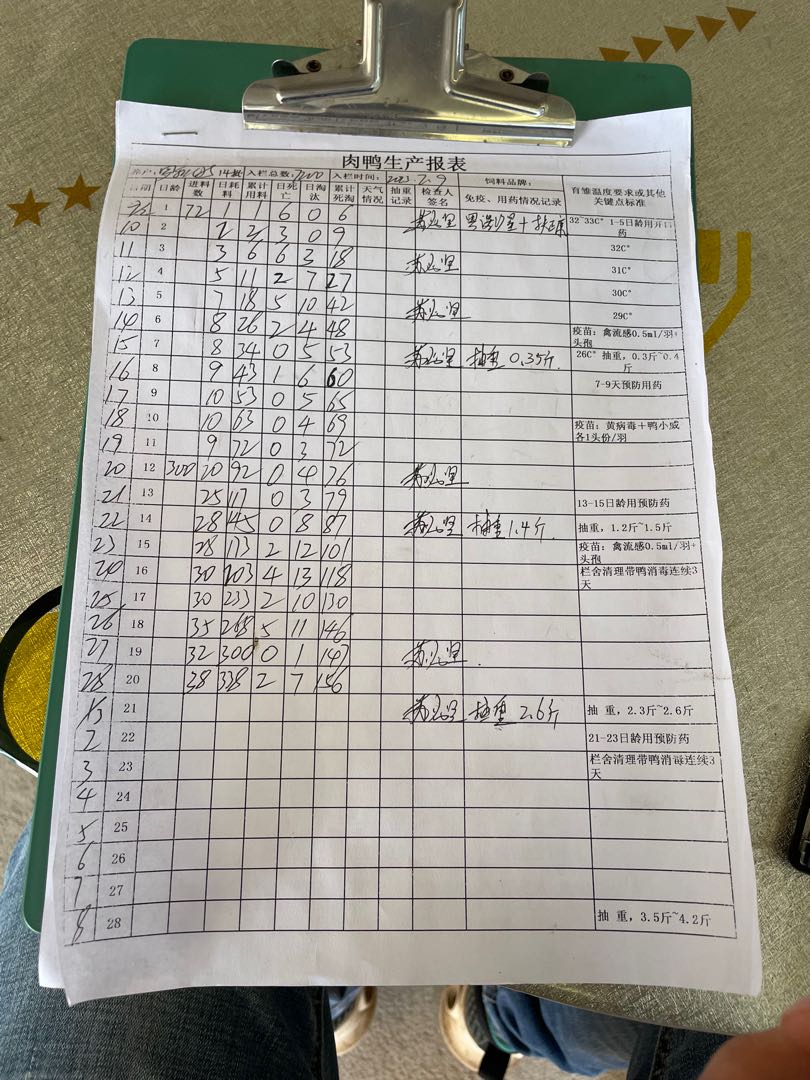 肉鸭生产报表
14批 入栏总数: 7200 入栏时间: 2023.2.9 饲料品牌:
日期 日龄 进料数 日耗料 累计用料 日死亡 日淘汰 累计死淘 天气情况 抽重记录 检查人签名 免疫、用药情况记录 育雏温度要求或其他关键点标准
1 72 1 1 6 0 6 32~33C° 1-5日龄用开口药
10 2 2 2 3 0 9
11 3 3 6 6 3 18 32C°
12 4 5 11 2 7 27 31C°
13 5 7 18 5 10 42 30C°
14 6 8 26 2 4 48 29C°
15 7 8 34 0 5 53 疫苗: 禽流感0.5ml/羽+头孢
16 8 9 43 1 6 60 抽重 0.35斤. 26C° 抽重, 0.3斤~0.4斤
17 9 10 53 0 5 65 7-9天预防用药
18 10 10 63 0 4 69
19 11 9 72 0 3 72 疫苗: 黄病毒+鸭小减各1头份/羽
20 12 300 20 92 0 4 76
21 13 25 117 0 3 79 13-15日龄用预防药
22 14 28 145 0 8 87 抽重 1.4斤. 抽重, 1.2斤~1.5斤
23 15 28 173 2 12 101 疫苗: 禽流感0.5ml/羽+头孢
24 16 30 203 4 13 118 栏舍清理带鸭消毒连续3天
25 17 30 233 2 10 130
26 18 35 268 5 11 146
27 19 32 300 0 1 147
28 20 38 338 2 7 156
1/3 21 抽重 2.6斤 抽 重, 2.3斤~2.6斤
2 22 21-23日龄用预防药
3 23 栏舍清理带鸭消毒连续3天
4 24
5 25
6 26
7 27
8 28 抽 重, 3.5斤~4.2斤